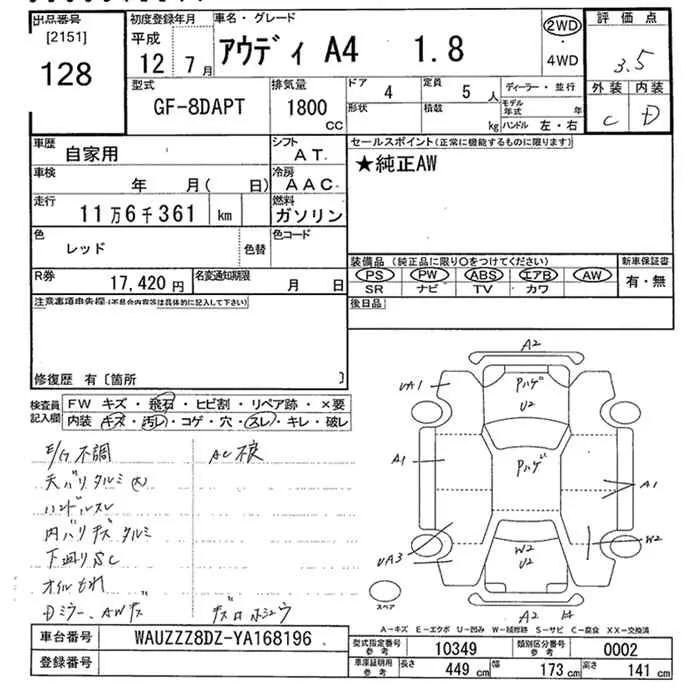 出品番号
[2151]
128
初度登録年月
平成
12 7月
車名・グレード
アウディ A4 1.8
2WD
・
4WD
評価点
3.5
外装 内装
C D
型式
GF-8DAPT
排気量
1800
CC
ドア
4
定員
5 人
形状
積載
kg
ディーラー・並行
モデル年式 年
ハンドル 左・右
車歴
自家用
シフト
AT.
車検
年 月( 日)
冷房
AAC
走行
11万6千361 km
燃料
ガソリン
色
レッド
色替
色コード
R券
17,420円
名変通知期限
月 日
セールスポイント(正常に機能するものに限ります)
★純正AW
装備品(純正品に限り○をつけてください)
PS PW ABS エアB AW
SR ナビ TV カワ
新車保証書
有・無
後日品
注意事項申告欄(不具合内容等は具体的に記入して下さい)
修復歴 有〔箇所 〕
検査員記入欄
FW キズ・飛石・ヒビ割・リペア跡・×要
内装・キズ・汚レ・コゲ・穴・スレ・キレ・破レ
E/G不調 AC不良
天バリタルミ(大)
ハンドルスレ
内バリキズタルミ
下廻りSC
オイルもれ
Dミラー、AWキズ
A2
UA1
Pハゲ
U2
A1
Pハゲ
A1
UA3
W2
W2
U2
スペア
A2
A-キズ E-エクボ U-凹み W-補修跡 S-サビ C-腐食 XX-交換済
車台番号
WAUZZZ8DZ-YA168196
登録番号
型式指定番号
参考
10349
類別区分番号
参考
0002
車庫証明用
参考
長さ 449 cm 幅 173 cm 高さ 141 cm